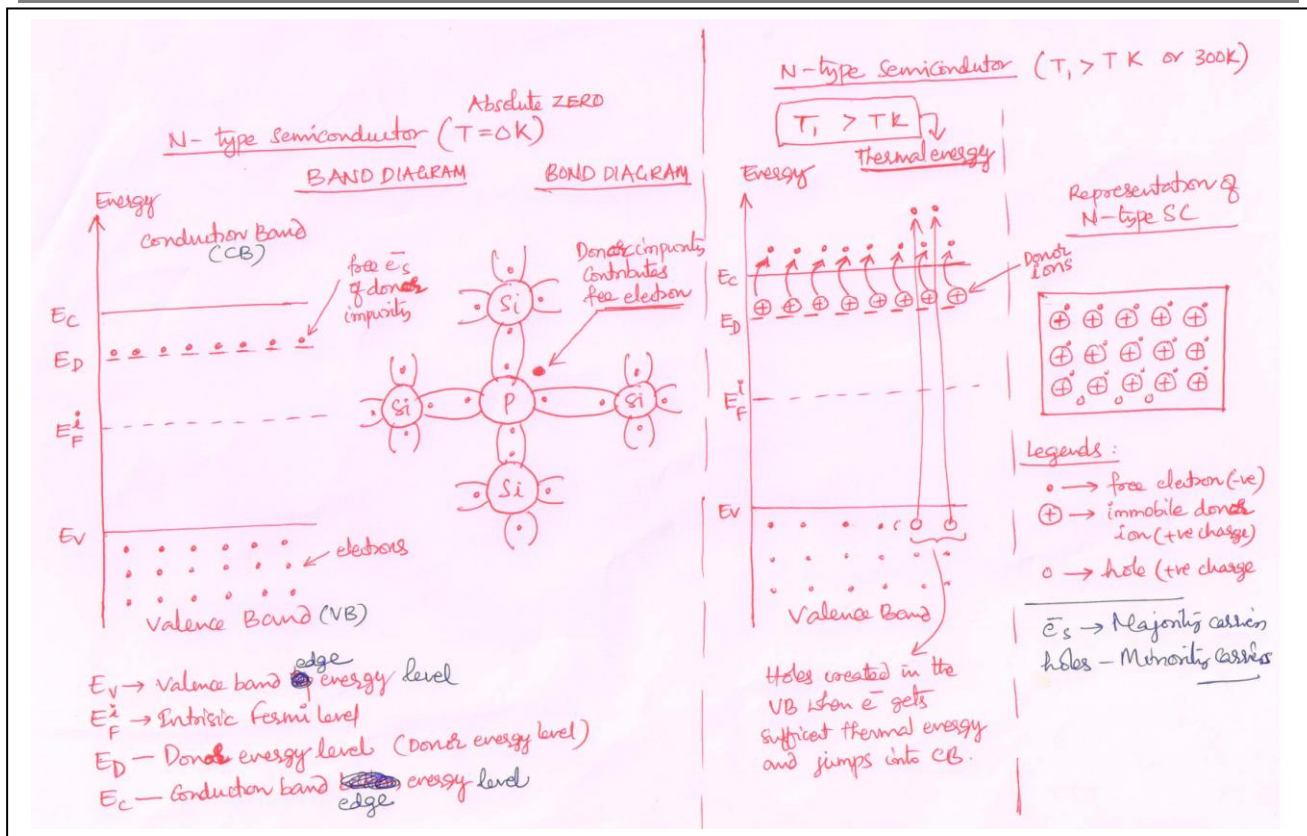 N-type Semiconductor (T=0K)
Absolute ZERO
BAND DIAGRAM
BOND DIAGRAM
Energy
Conduction Band
(CB)
free e̅s
of donor
impurity
Ec
ED
E_F^i
Ev
electrons
Valence Band (VB)
Donor impurity
Contributes
free electron
Si
Si
P
Si
Si
Ev → Valence band edge energy level
E_F^i → Intrisic Fermi level
ED — Donor energy level (Donor energy level)
Ec — Conduction band edge energy level
N-type Semicondutor (T₁ > T K or 300K)
T₁ > TK
thermal energy
Energy
Ec
ED
E_F^i
Ev
Donor
ions
Valence Band
Holes created in the
VB when e̅ gets
sufficent thermal energy
and jumps into CB.
Representation of
N-type SC
Legends :
• → free electron (-ve)
⊕ → immobile donor
ion (+ve charge)
o → hole (+ve charge
e̅s → Majority carriers
holes – Minority carriers